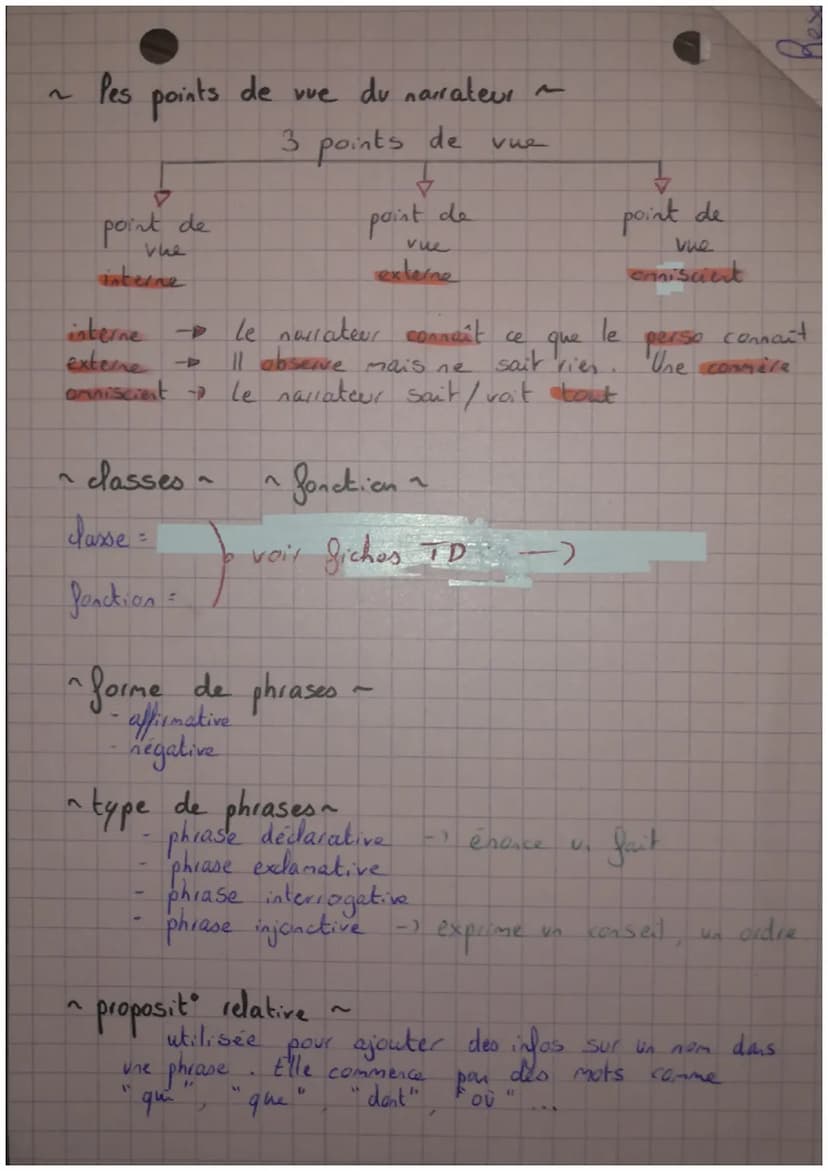 ~ Les points de vue du narrateur ~
3 points de vue
point de vue interne
point de vue externe
point de vue omniscient
interne → Le narrateur connaît ce que le perso connaît
externe → Il observe mais ne sait rien. Une commère
omniscient → Le narrateur sait/voit tout
~ classes ~ ~ fonction ~
classe =
voir fiches TD →
fonction =
~ forme de phrases ~
- affirmative
- négative
~ type de phrases ~
- phrase déclarative → énonce un fait
- phrase exclamative
- phrase interrogative
- phrase injonctive → exprime un conseil, un ordre
~ proposit° relative ~
utilisée pour ajouter des infos sur un nom dans
une phrase. Elle commence par des mots comme
"qui", "que", "dont", "où" ...